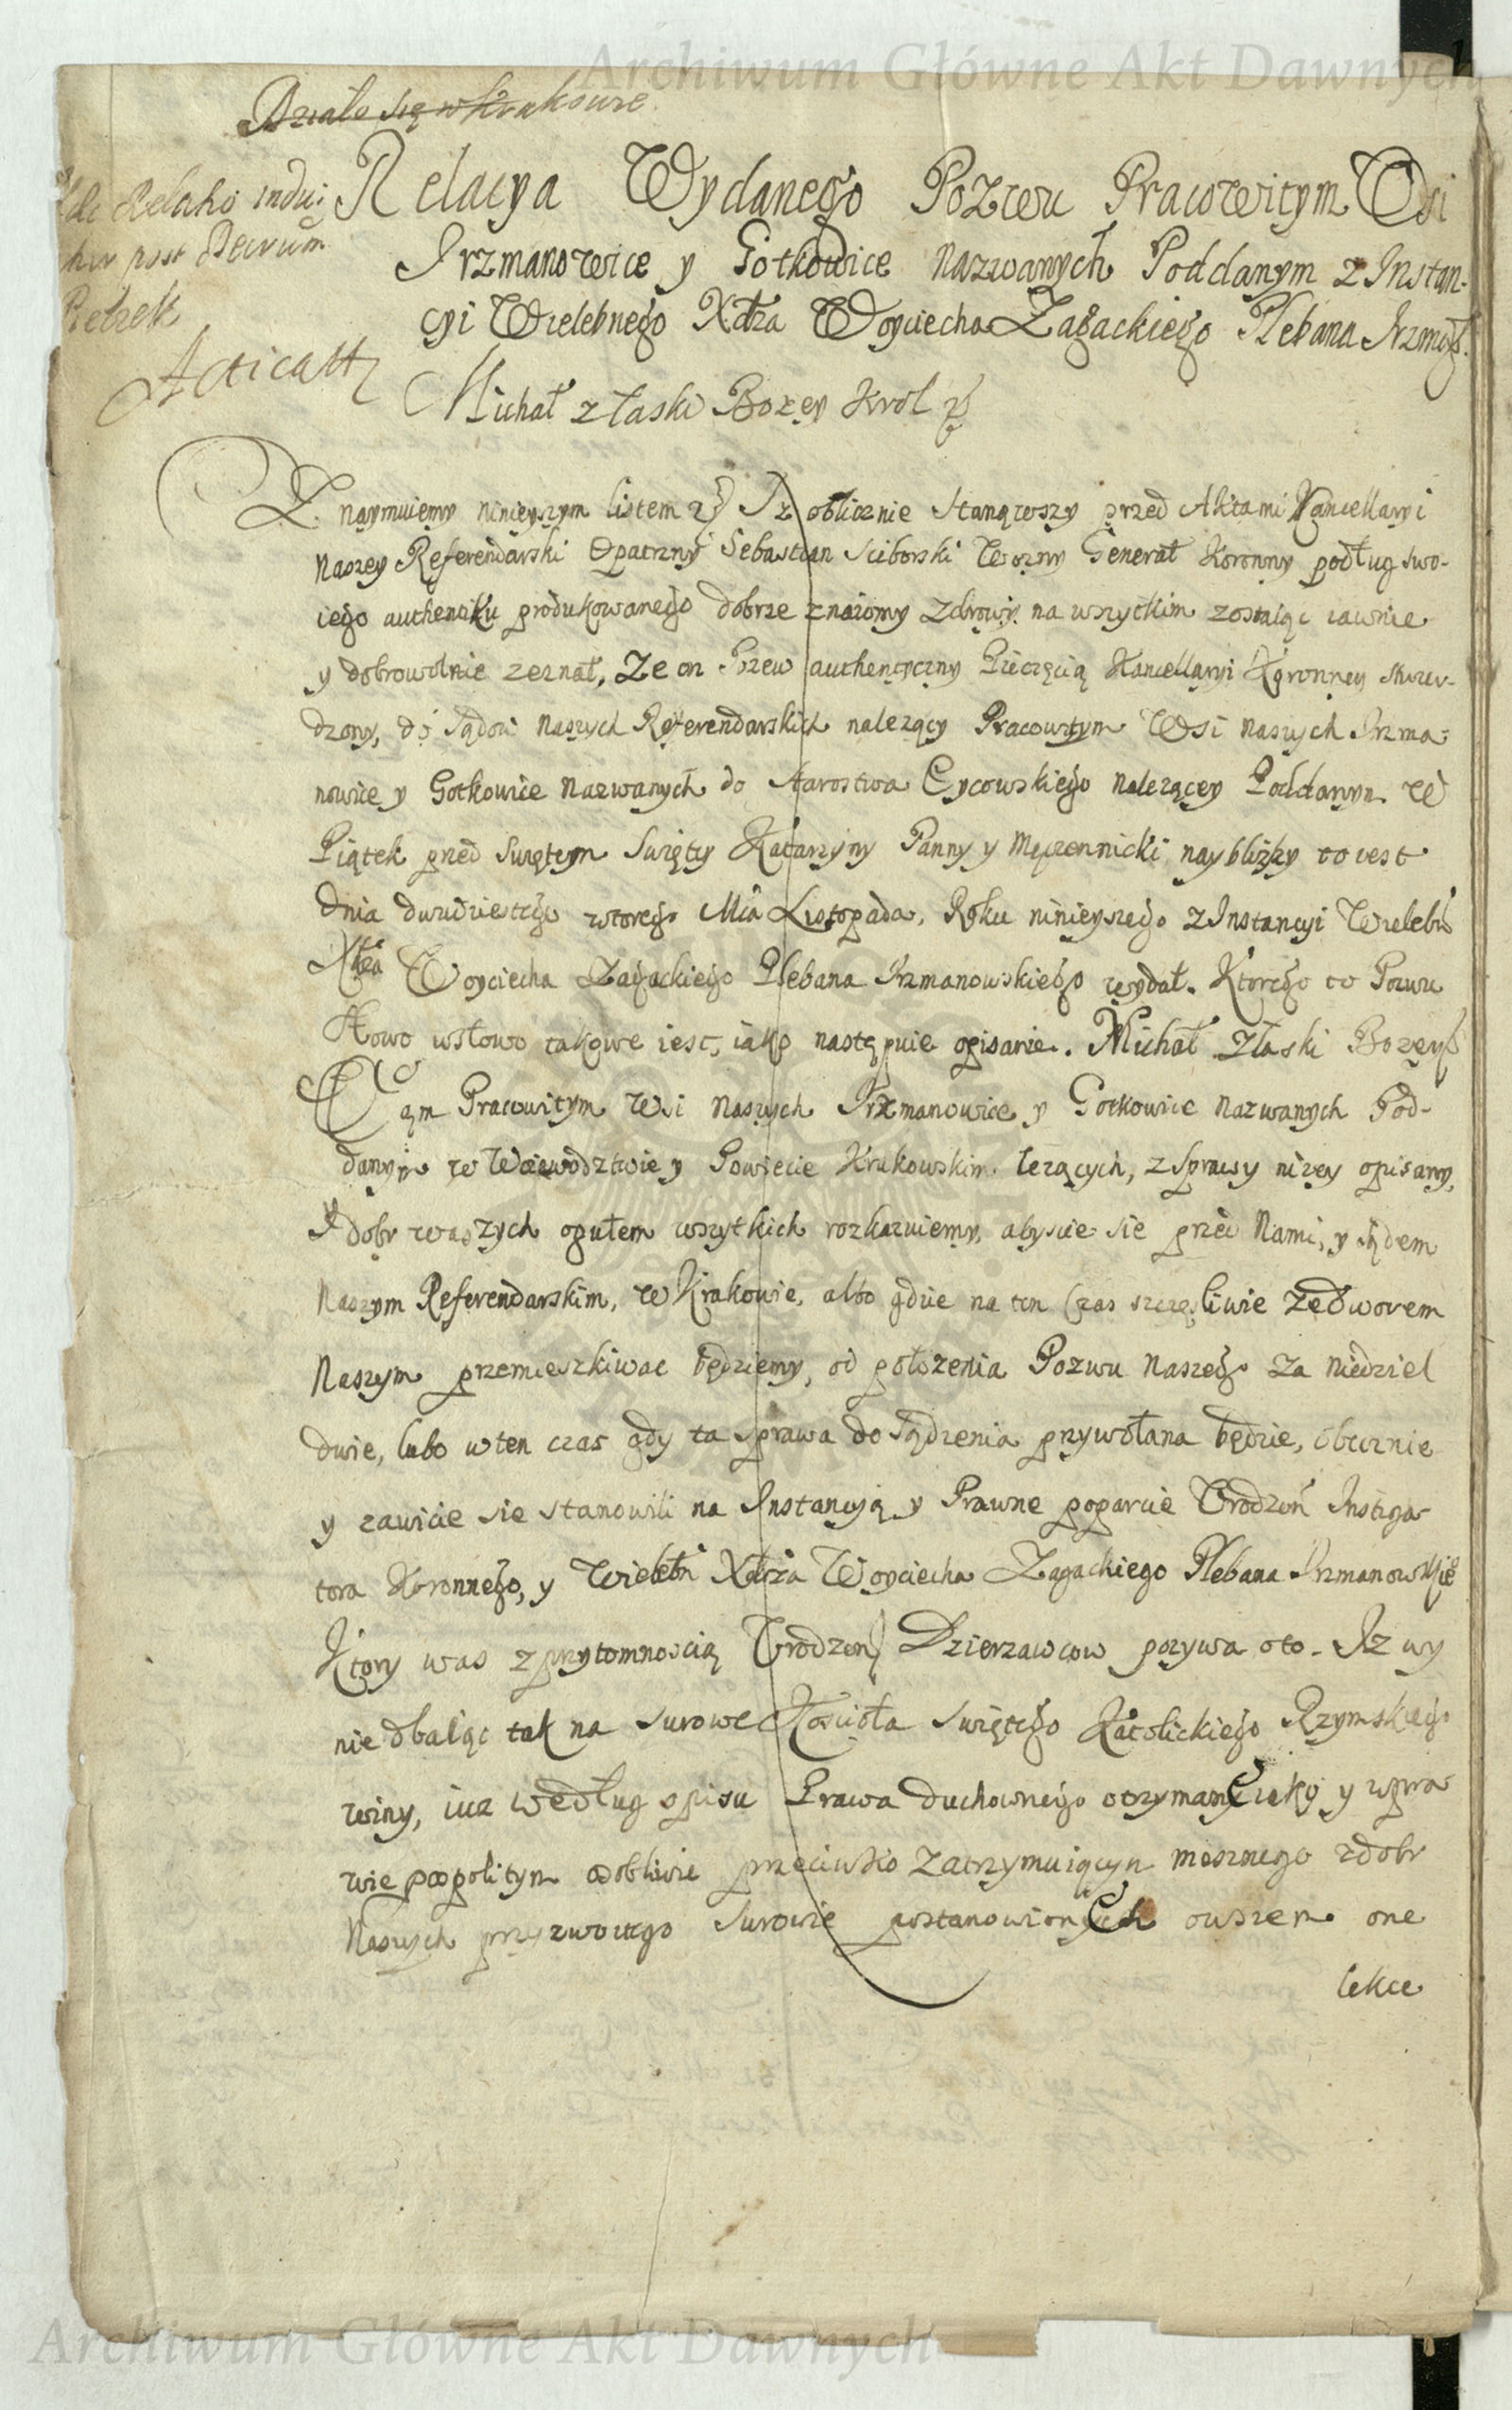 Archiwum Główne Akt Dawnych
Działo się w Krakowie
Relatio indu-
post Decretum
Petrek
Acticatt
Relacya Wydanego Pozwu Pracowitym Wsi
Irzmanowice y Gotkowice nazwanych Poddanym z Instan-
cyi Wielebnego Xdza Woyciecha Zagackiego Plebana Irzmgo
Michał z łaski Bozey Krol
Zeznaymuiemy ninieyszym listem Iz oblicznie stanąwszy przed Aktami Kancellaryi
naszey Referendarski Opatrzny Sebastian Sciborski Wozny Generał Koronny podług swo-
iego authentiku produkowanego dobrze znaiomy zdrowy na wszytkim zostaiąc iawnie
y dobrowolnie zeznał, Ze on Pozew authentyczny Pieczęcią Kancellaryi Koronney stwier-
dzony, do Sądow naszych Referendarskich nalezący Pracowitym Wsi naszych Irzma-
nowice y Gotkowice nazwanych do starostwa Cycowskiego nalezącey Poddanym w
Piątek przed Swiętem Swięty Katarzyny Panny y Męczennicki nayblizszy to iest
dnia dwudziestego wtorego Mca Listopada, Roku ninieyszego z Instancyi Wielebn
Xdza Woyciecha Zagackiego Plebana Irzmanowskiego wydał. Ktorego to Pozwu
słowo wsłowo takowe iest, iako następuie opisanie. Michał z łaski Bozey
Wam Pracowitym Wsi naszych Irzmanowice y Gotkowice nazwanych Pod-
danym w Woiewodztwie y Powiecie Krakowskim lezących, z sprawy nizey opisany,
y dobr waszych ogułem wszytkich rozkazuiemy, abyscie sie przed Nami, y sądem
Naszym Referendarskim, w Krakowie, albo gdzie na ten czas szczęsliwie ze dworem
Naszym przemieszkiwac będziemy, od połozenia Pozwu naszego za niedziel
dwie, lubo w ten czas gdy ta sprawa do sądzenia przywołana będzie, obecznie
y zawicie sie stanowili na Instancyią y Prawne poparcie Urodzon Instiga-
tora Koronnego, y Wielebn Xdza Woyciecha Zagackiego Plebana Irzmanowskie
Ktory was z przytomnoscią Urodzon Dzierzawcow pozywa oto. Iz wy
nie dbaiąc tak na surowe Koscioła Swiętego Katolickiego Rzymskiego
winy, iuz według opisu Prawa duchownego otrzymane iako y w pra-
wie pospolitym osobliwie przeciwko zatrzymuiącym mesznego z dobr
Naszych przyzwoitego surowie postanowionych owszem one
lekce
Archiwum Główne Akt Dawnych